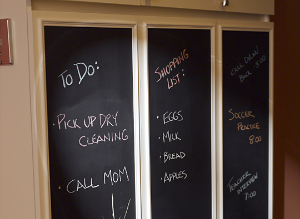 To Do:
• PICK UP DRY
CLEANING
• CALL MOM
SHOPPING
LIST:
• EGGS
• MILK
• BREAD
• APPLES
CALL DAN
BACK
8:00
SOCCER
PRACTICE
8:00
TEACHER
INTERVIEW
7:00